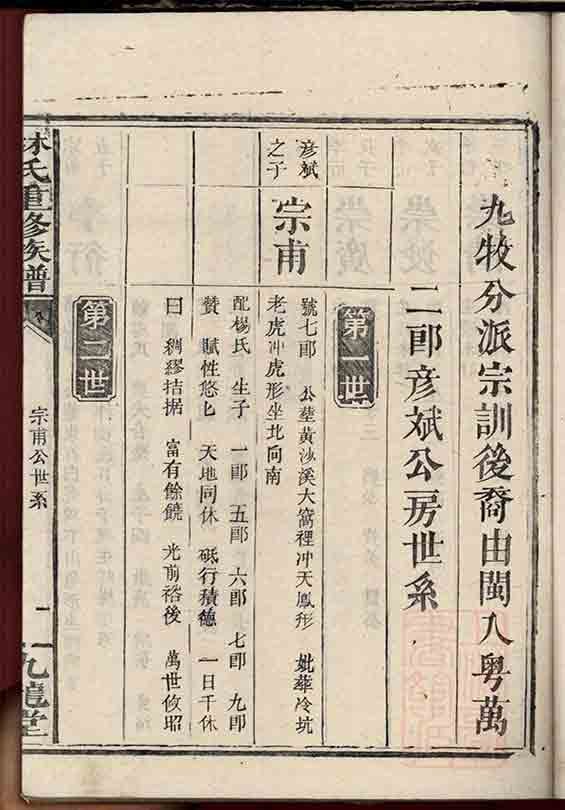 九牧分派宗訓後裔由閩入粵萬
二郎彦斌公房世系
第一世
彦斌
之子
宗甫
號七郎 公塟黄沙溪大窩裡冲天鳳形 妣葬冷坑
老虎冲虎形坐北向南
配楊氏 生子 一郎 五郎 六郎 七郎 九郎
贊 賦性悠匕 天地同休 砥行積德 一日千休
曰 稠繆拮据 富有餘饒 光前裕後 萬世攸昭
第二世
林氏重修族譜
宗甫公世系
一
九龍堂